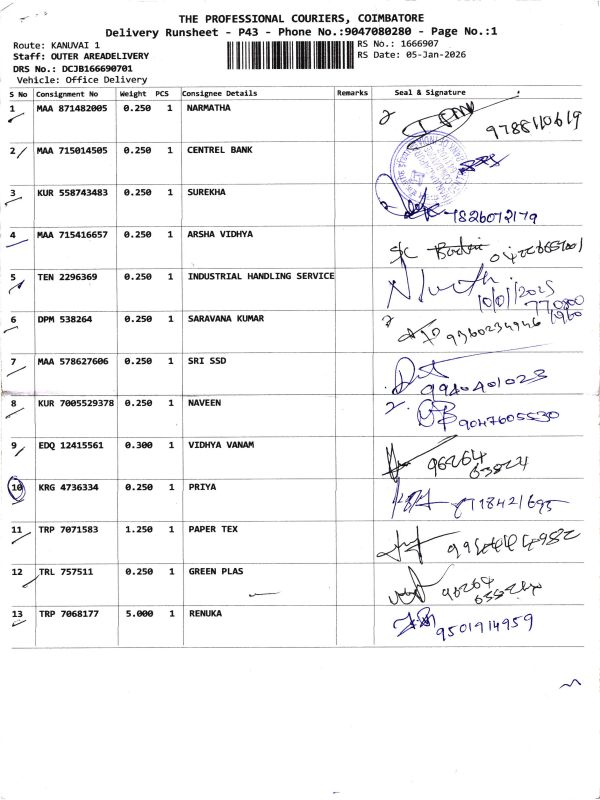 THE PROFESSIONAL COURIERS, COIMBATORE
Delivery Runsheet - P43 - Phone No.:9047080280 - Page No.:1
Route: KANUVAI 1
RS No.: 1666907
Staff: OUTER AREADELIVERY
RS Date: 05-Jan-2026
DRS No.: DCJB166690701
Vehicle: Office Delivery
S No Consignment No Weight PCS Consignee Details Remarks Seal & Signature
1 MAA 871482005 0.250 1 NARMATHA 9788110619
2 MAA 715014505 0.250 1 CENTREL BANK
3 KUR 558743483 0.250 1 SUREKHA
4 MAA 715416657 0.250 1 ARSHA VIDHYA
5 TEN 2296369 0.250 1 INDUSTRIAL HANDLING SERVICE
10/01/2025
6 DPM 538264 0.250 1 SARAVANA KUMAR 9360234946
7 MAA 578627606 0.250 1 SRI SSD 9940401023
8 KUR 7005529378 0.250 1 NAVEEN 9047605530
9 EDQ 12415561 0.300 1 VIDHYA VANAM 96264
63824
10 KRG 4736334 0.250 1 PRIYA
11 TRP 7071583 1.250 1 PAPER TEX
12 TRL 757511 0.250 1 GREEN PLAS 96264
13 TRP 7068177 5.000 1 RENUKA 9501914959